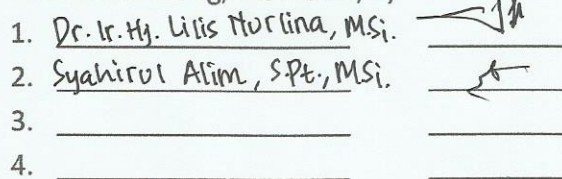 1. Dr. Ir. Hj. Lilis Nurlina, M.Si.
2. Syahirul Alim, S.Pt., M.Si.
3.
4.